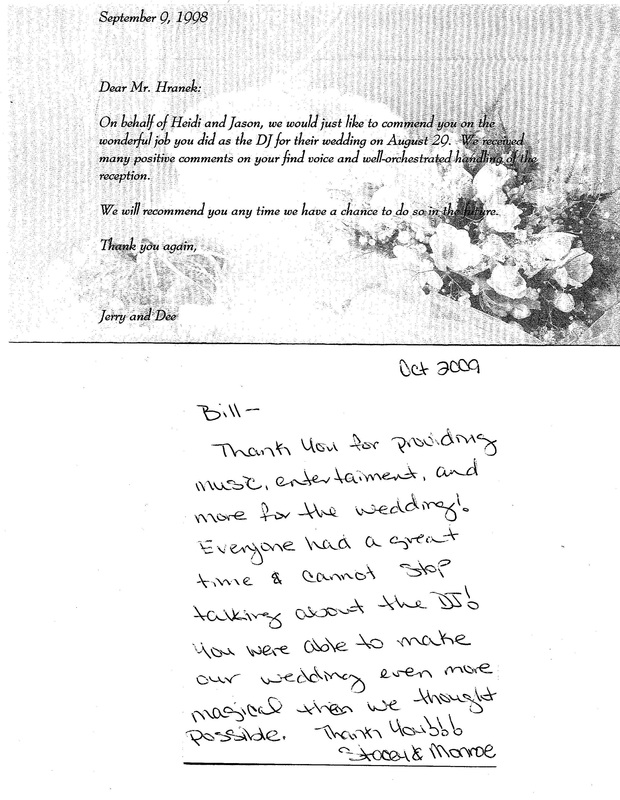 September 9, 1998
Dear Mr. Hranek:
On behalf of Heidi and Jason, we would just like to commend you on the
wonderful job you did as the DJ for their wedding on August 29. We received
many positive comments on your find voice and well-orchestrated handling of the
reception.
We will recommend you any time we have a chance to do so in the future.
Thank you again,
Jerry and Dee
Oct 2009
Bill-
Thank You for providing
music, entertaiment, and
more for the wedding!
Everyone had a great
time & cannot stop
talking about the DJ!
You were able to make
our wedding even more
magical then we thought
possible. Thank You!!!
Stacey & Monroe